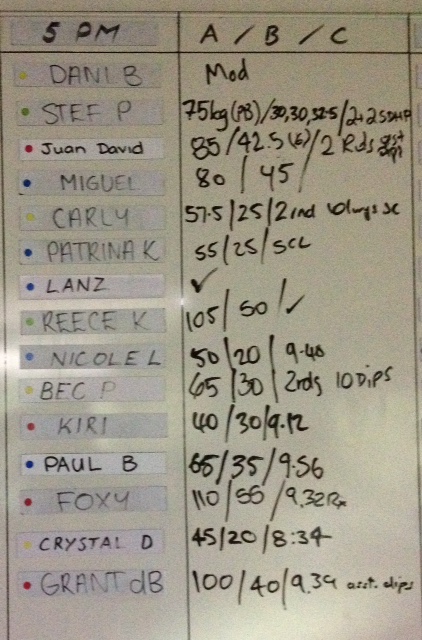 5 PM A / B / C
DANI B Mod
STEF P 75kg (PB) / 30, 30, 32.5 / 2+2
Juan David 85 / 42.5 / 2 Rds
MIGUEL 80 / 45 /
CARLY 57.5 / 25 / 2 rnd
PATRINA K 55 / 25 / SCL
LANZ ✓
REECE K 105 / 50 / ✓
NICOLE L 50 / 20 / 9.40
BEC P 65 / 30 / 2rds 10 Dips
KIRI 40 / 30 / 9.12
PAUL B 65 / 35 / 9.56
FOXY 110 / 55 / 9.32 Rx
CRYSTAL D 45 / 20 / 8:34
GRANT dB 100 / 40 / 9.39 asst. dips